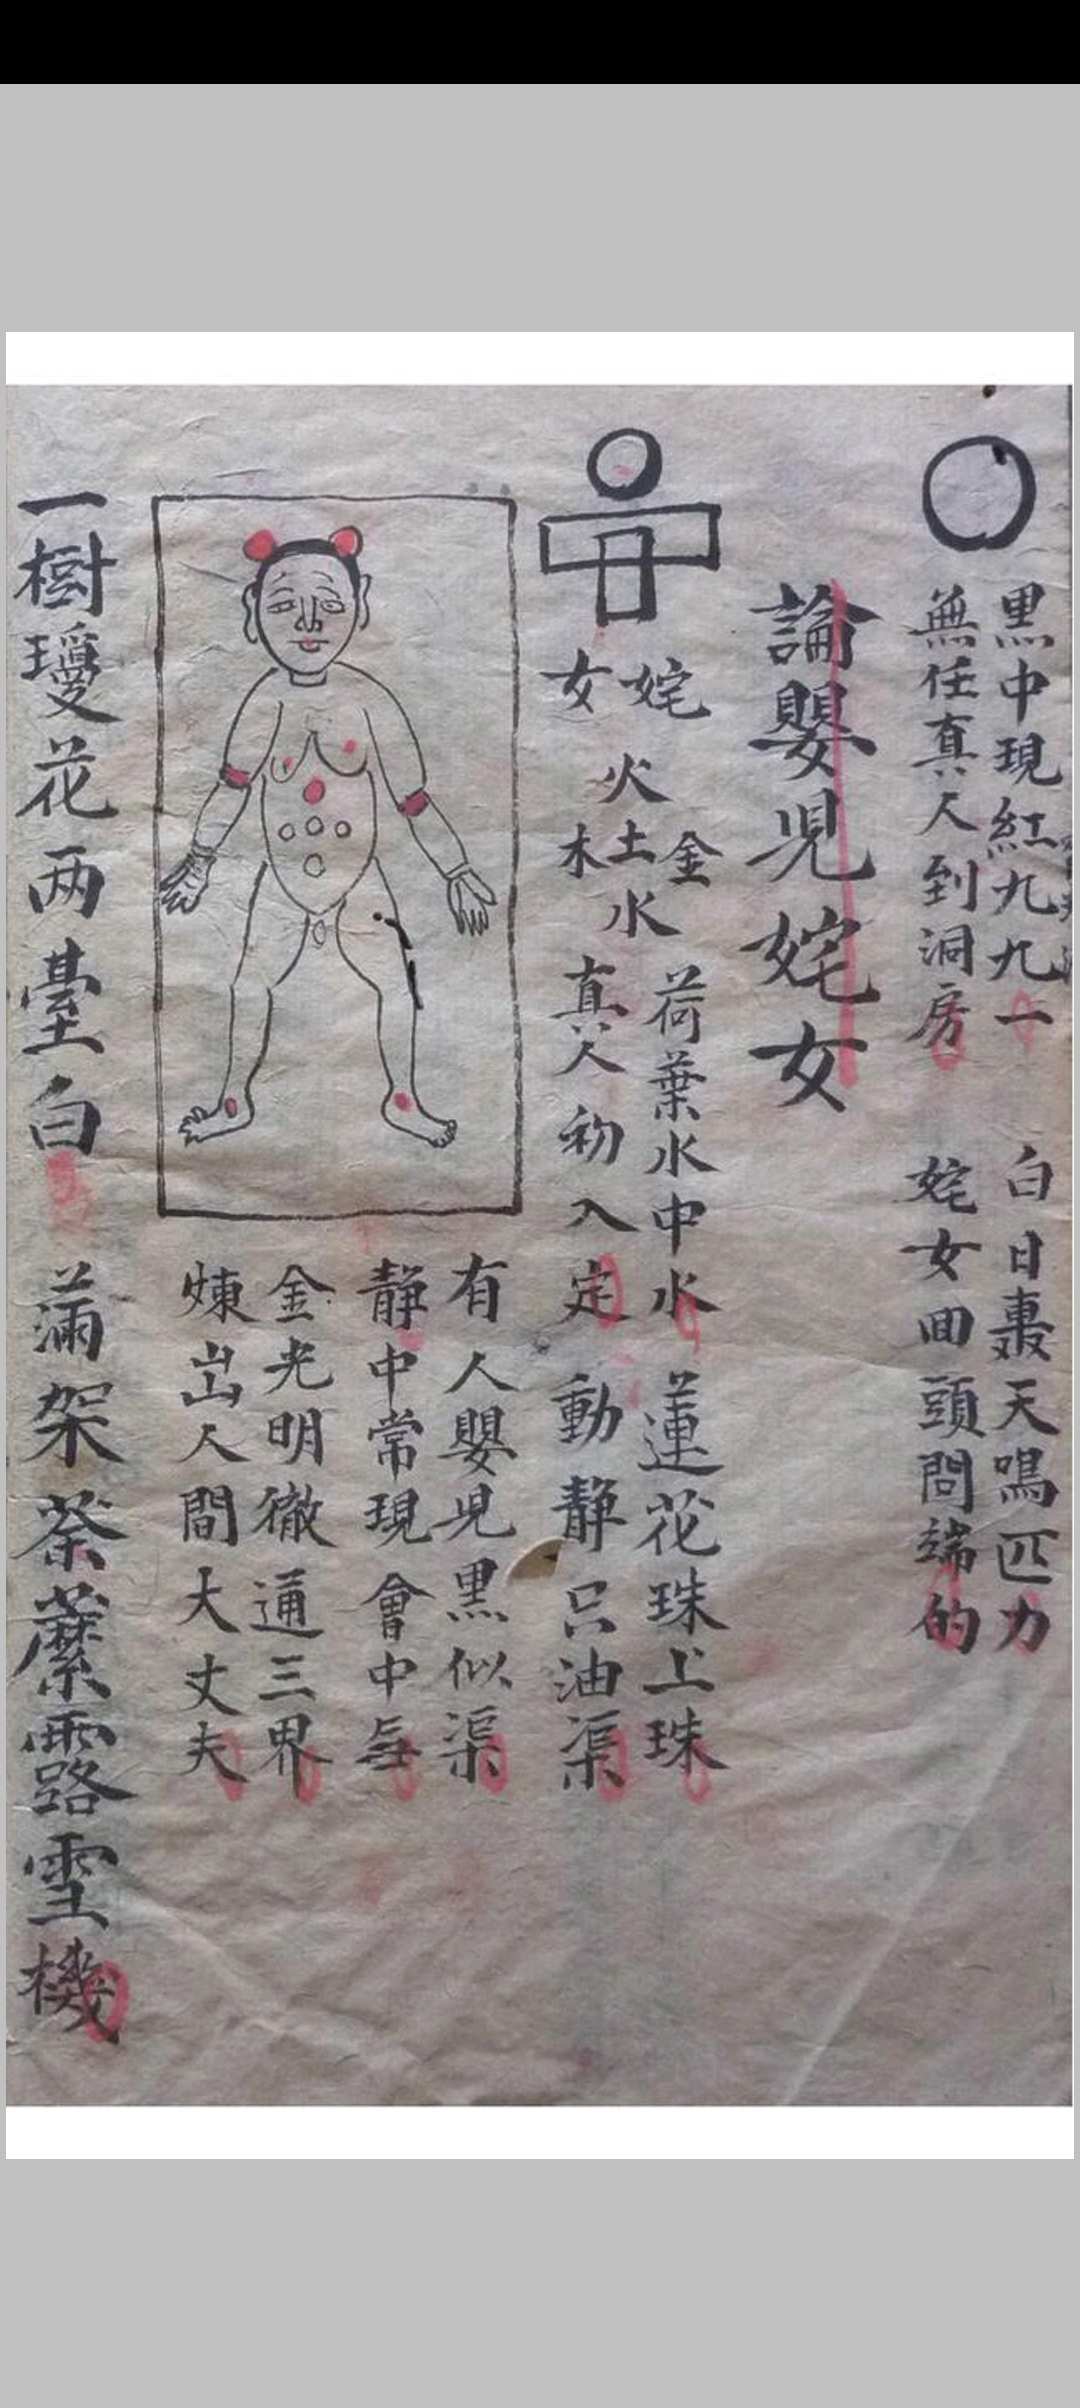 黒中現紅九九一　白日裹天鳴匹力
無任真人到洞房　姹女回頭問端的
論嬰児姹女
姹女
火
木土金
水
荷葉水中水　蓮花珠上珠
真人初入定　動静只油渠
有人嬰児黒似渠
静中常現會中無
金光明徹通三界
煉出人間大丈夫
一樹瓊花两臺白　滿架荼蘼露雪機